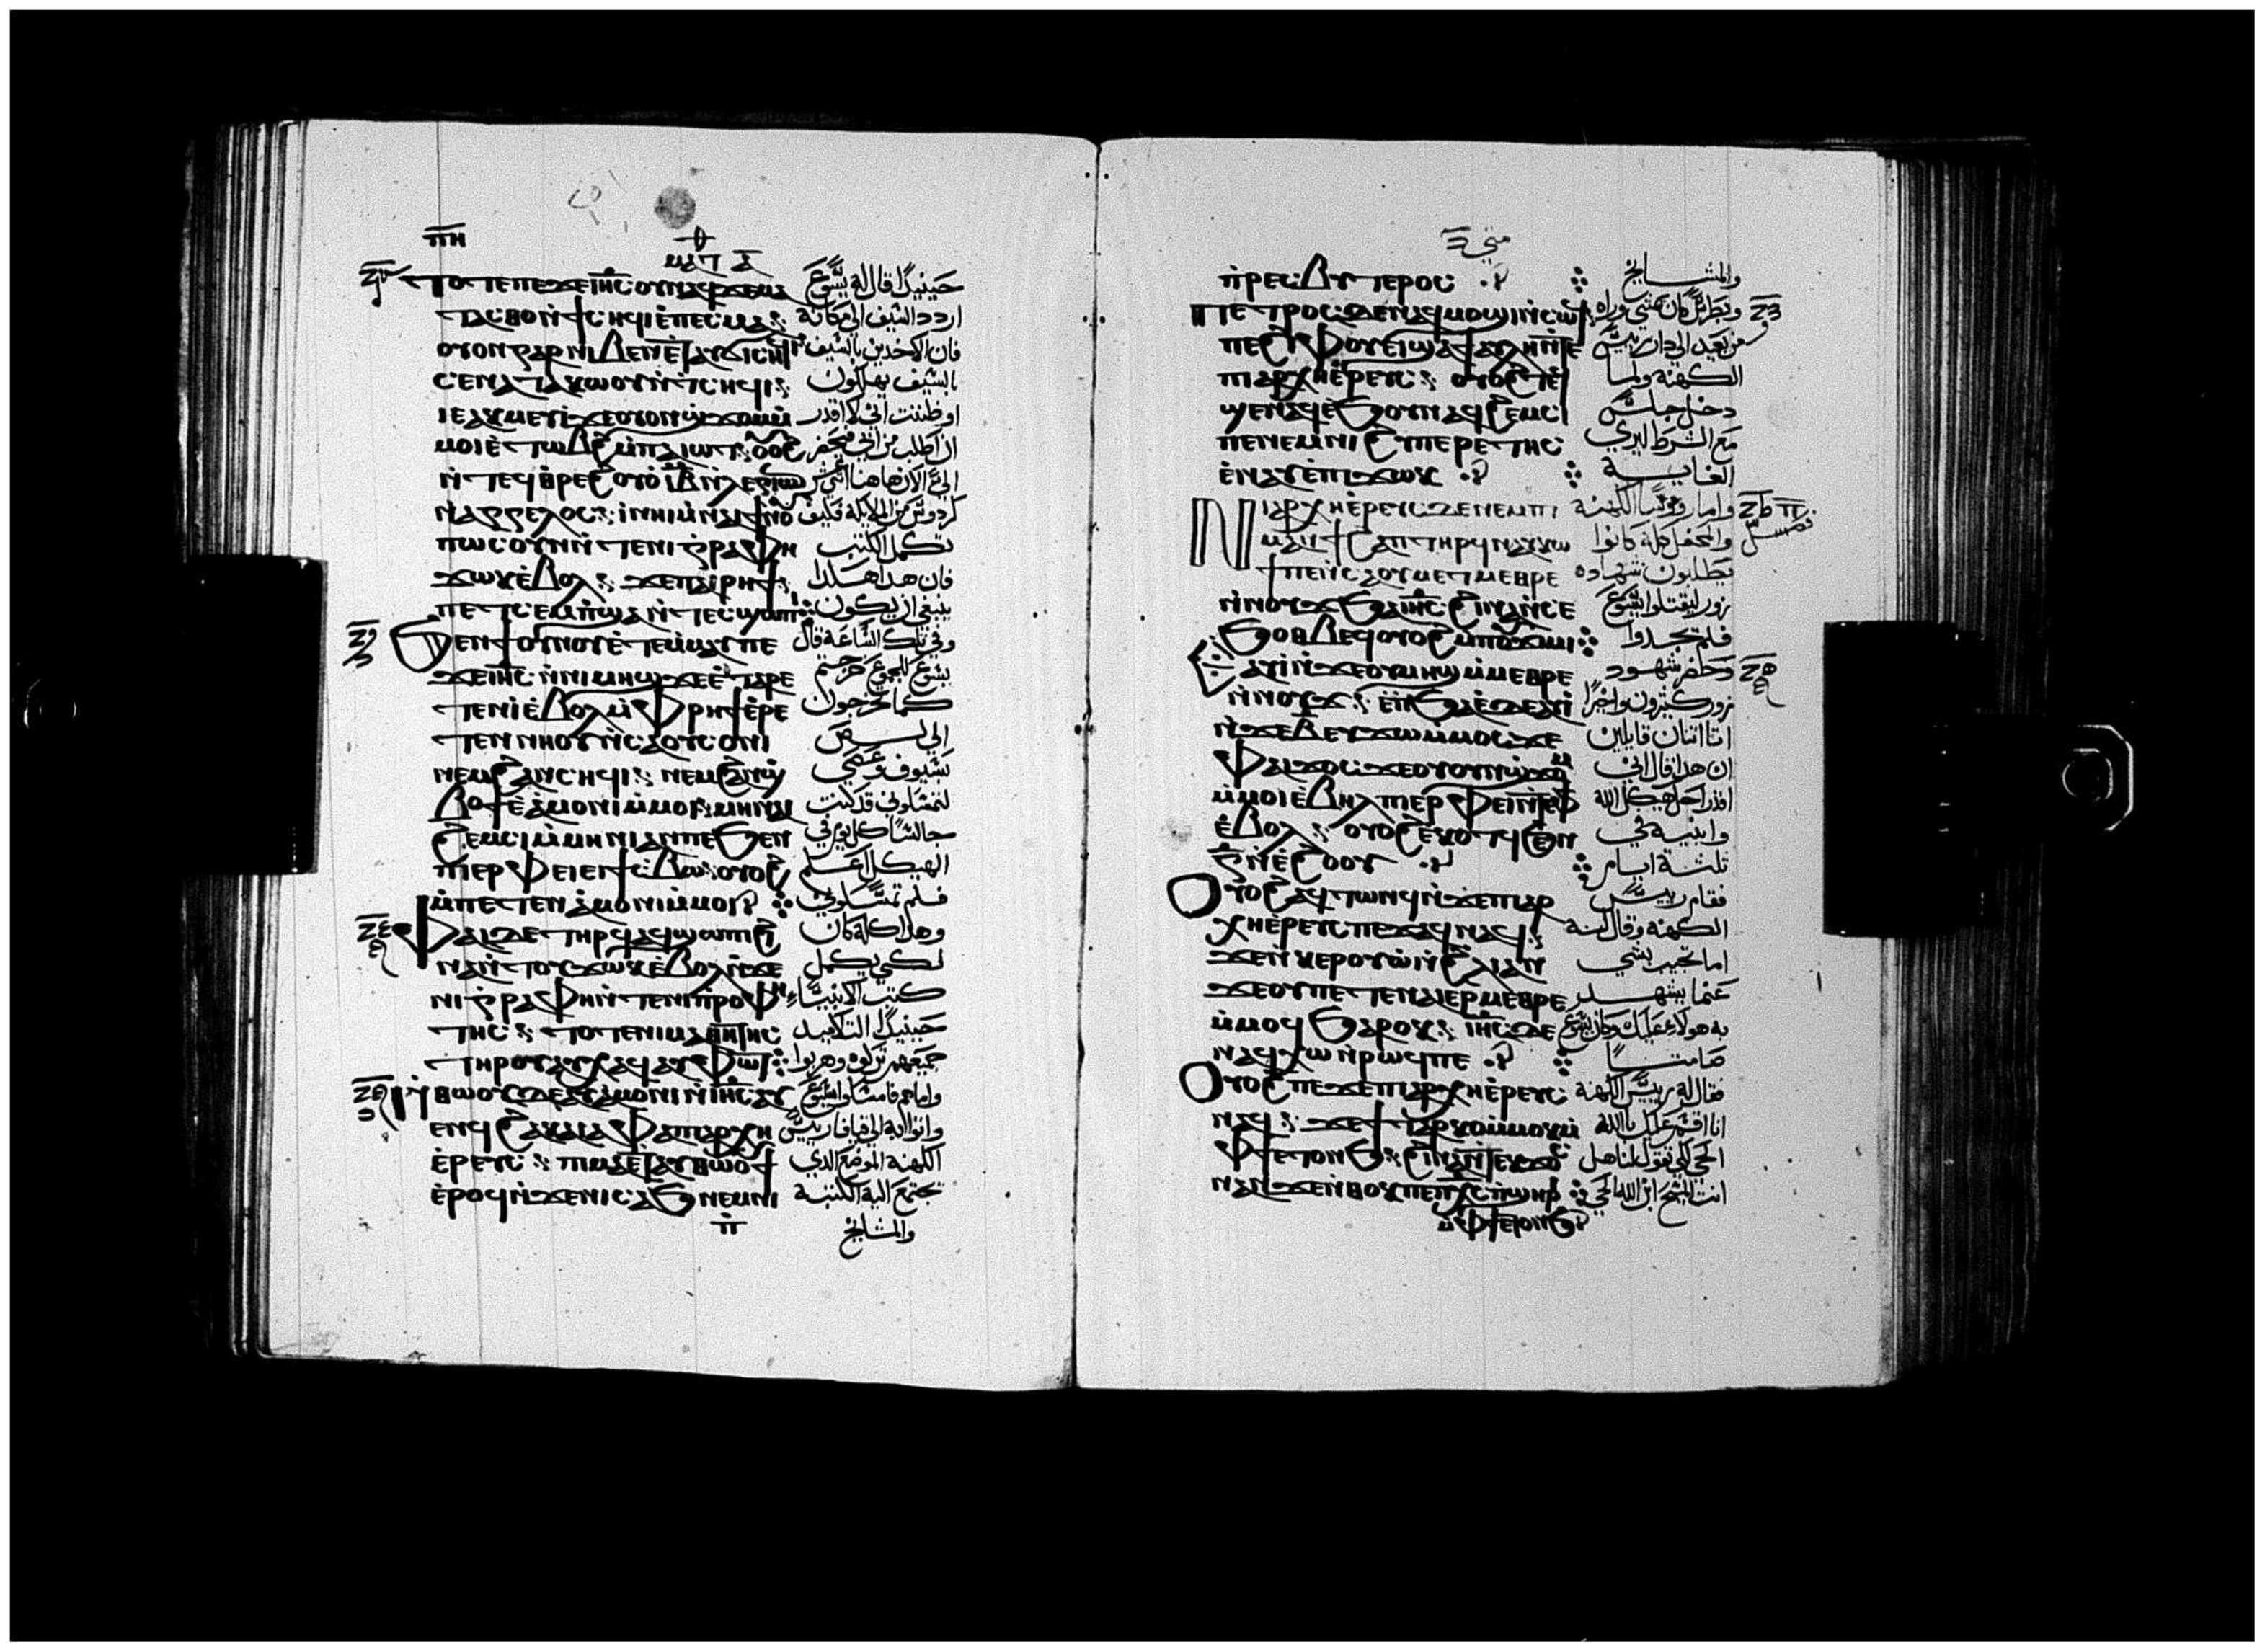 ⲡⲏ
ⲙⲁⲧ ⲁ
ⲧⲟⲧⲉ ⲡⲉϫⲉ ⲓⲏⲥ ⲟⲩⲛ ⲛⲁϥ ϫⲉ ⲙⲁ حينيذ قال له يسوع
ⲧⲁⲥⲑⲟ ⲛϯⲥⲏϥⲓ ⲉⲡⲉⲥⲙⲁ اردد السيف الى مكانه
ⲟⲩⲟⲛ ⲅⲁⲣ ⲛⲓⲃⲉⲛ ⲉⲧⲁⲩϭⲓ ⲥⲏϥⲓ فان الاخدين بالسيف
ⲥⲉⲛⲁⲧⲁⲕⲱⲟⲩ ⲛⲧⲥⲏϥⲓ بالسيف يهلكون
ⲓⲉ ⲁⲕⲙⲉⲩⲓ ϫⲉ ⲟⲩⲟⲛ ϣϫⲟⲙ ⲙ او ظننت انى لا اقدر
ⲙⲟⲓ ⲉⲧⲱⲃϩ ⲙⲡⲁⲓⲱⲧ ⲟⲩⲟϩ ان اطلب من ابي فيحضر
ⲛⲧⲉϥⲑⲣⲉ
ⲛⲁⲅⲅⲉⲗⲟⲥ
ⲡⲱⲥ ⲟⲩⲛ ⲛⲧⲉ ⲛⲓⲅⲣⲁⲫⲏ تكمل الكتب
ϫⲱⲕ ⲉⲃⲟⲗ ϫⲉ ⲡⲁⲓⲣⲏϯ فان هدا هكدا
ⲡⲉⲧⲥⲉⲙⲡϣⲁ ⲛⲧⲉⲥϣⲱⲡⲓ ينبغي ان يكون
ϧⲉⲛ ϯⲟⲩⲛⲟⲩ ⲉⲧⲉⲙⲙⲁⲩ ⲡⲉ وفي تلك الساعة قال
ϫⲉ ⲓⲏⲥ ⲛⲛⲓⲙⲏϣ ϫⲉ ⲉⲧⲁⲣⲉ يسوع للجموع خرجتم
ⲧⲉⲛⲓ ⲉⲃⲟⲗ ⲙⲫⲣⲏϯ ⲉⲣⲉ كما تخرجون
ⲧⲉⲛⲛⲏⲟⲩ ⲛⲥⲁ ⲟⲩⲥⲟⲛⲓ الي لص
ⲛⲉⲙ ϩⲁⲛⲥⲏϥⲓ ⲛⲉⲙ ϩⲁⲛϣ بسيوف وعصي
ⲃⲟϯ ⲉⲁⲙⲟⲛⲓ ⲙⲙⲟⲓ قد كنت
ϩⲉⲙⲥⲓ ⲙⲙⲏⲛⲓ ⲁⲛ ⲡⲉ ϧⲉⲛ جالسا كل يوم في
ⲡⲓⲉⲣⲫⲉⲓ ⲉⲓϯⲥⲃⲱ ⲟⲩⲟϩ الهيكل اعلم
ⲙⲡⲉⲧⲉⲛⲁⲙⲟⲛⲓ ⲙⲙⲟⲓ فلم تمسكوني
ⲫⲁⲓ ⲇⲉ ⲧⲏⲣϥ ⲁϥϣⲱⲡⲓ ϩⲓ وهدا كله كان
ⲛⲁ ⲛⲧⲟⲩϫⲱⲕ ⲉⲃⲟⲗ ⲛϫⲉ لكي يكمل
ⲛⲓⲅⲣⲁⲫⲏ ⲛⲧⲉ ⲛⲓⲡⲣⲟⲫⲏ كتب الانبياء
ⲧⲏⲥ ⲧⲟⲧⲉ ⲛⲓⲙⲁⲑⲏⲧⲏⲥ حينيذ التلاميد
ⲧⲏⲣⲟⲩ ⲁⲩⲭⲁϥ ⲁⲩⲫⲱⲧ جميعهم تركوه وهربوا
ⲛⲑⲱⲟⲩ ⲇⲉ ⲉⲧⲁⲩⲁⲙⲟⲛⲓ ⲛⲓⲏⲥ ⲁⲩ
ⲉⲛϥ ϩⲁ ⲕⲁⲓⲁⲫⲁ ⲡⲓⲁⲣⲭⲏ واتوا به الى قيافا رييس
ⲉⲣⲉⲩⲥ ⲡⲓⲙⲁ ⲉⲧⲁⲩⲑⲱⲟⲩϯ الكهنة الموضع الدي
ⲉⲣⲟϥ ⲛϫⲉ ⲛⲓⲥⲁϧ ⲛⲉⲙ ⲛⲓ تجتمع اليه الكتبة
ⲡ والمشايخ
ⲡⲣⲉⲥⲃⲩⲧⲉⲣⲟⲥ والمشايخ
ⲡⲉⲧⲣⲟⲥ ⲇⲉ ⲛⲁϥⲙⲟϣⲓ ⲛⲥⲱϥ وبطرس كان يمشي وراه
من بعيد الي دار رييس
ⲡⲓⲁⲣⲭⲏⲉⲣⲉⲩⲥ ⲟⲩⲟϩ ⲉⲧⲁϥ الكهنة ولما
ϣⲉⲛⲁϥ ⲉϧⲟⲩⲛ ⲛⲁϥϩⲉⲙⲥⲓ دخل جلس
ⲡⲉ ⲛⲉⲙ ⲛⲓϩⲩⲡⲉⲣⲉⲧⲏⲥ مع الشرط ليري
ⲉⲛⲁⲩ ⲉⲡⲓϫⲱⲕ الغاية
ⲛⲓⲁⲣⲭⲏⲉⲣⲉⲩⲥ ⲇⲉ ⲛⲉⲙ ⲡⲓ واما روسا الكهنة
ⲙⲁⲛϯϩⲁⲡ ⲧⲏⲣϥ ⲛⲁⲩⲕⲱ والمحفل كله كانوا
ϯ ⲡⲉ ⲛⲥⲁ ⲟⲩⲙⲉⲧⲙⲉⲑⲣⲉ يطلبون شهادة
ⲛⲛⲟⲩϫ ϧⲁ ⲓⲏⲥ ϩⲓⲛⲁ ⲛⲥⲉ زور ليقتلوا يسوع
ϧⲟⲑⲃⲉϥ ⲟⲩⲟϩ ⲙⲡⲟⲩϫⲓⲙⲓ فلم يجدوا
ⲁⲩⲓ ⲛϫⲉ ⲟⲩⲙⲏϣ ⲙⲙⲉⲑⲣⲉ وحضر شهود
ⲛⲛⲟⲩϫ ⲉⲡϧⲁⲉ ⲇⲉ ⲁⲩⲓ زور كثيرون واخيرا
ⲛϫⲉ ⲃ ⲉⲩϫⲱ ⲙⲙⲟⲥ ϫⲉ اتا اتنان قايلين
ⲫⲁⲓ ϫⲟⲥ ϫⲉ ⲟⲩⲟⲛ ϣϫⲟⲙ ان هدا قال اني
ⲙⲙⲟⲓ ⲉⲃⲉⲗ ⲡⲓⲉⲣⲫⲉⲓ ⲛⲧⲉ ⲫϯ اقدر احل هيكل الله
ⲉⲃⲟⲗ ⲟⲩⲟϩ ⲉⲕⲟⲧϥ ϧⲉⲛ وابنيه في
ⲅ ⲛⲉϩⲟⲟⲩ تلتة ايام
ⲟⲩⲟϩ ⲁϥⲧⲱⲛϥ ⲛϫⲉ ⲡⲓⲁⲣ فقام رييس
ⲭⲏⲉⲣⲉⲩⲥ ⲡⲉϫⲁϥ ⲛⲁϥ الكهنة وقال له
ϫⲉ ⲛⲕⲉⲣⲟⲩⲱ ⲛϩⲗⲓ ⲁⲛ اما تجيب بشي
ϫⲉ ⲟⲩ ⲡⲉⲧⲉ ⲛⲁⲓ ⲉⲣⲙⲉⲑⲣⲉ عما يشهد
ⲙⲙⲟϥ ϧⲁⲣⲟⲕ ⲓⲏⲥ ⲇⲉ به هولاء عليك وكان يسوع
ⲛⲁϥⲭⲱ ⲛⲣⲱϥ ⲡⲉ صامتا
ⲟⲩⲟϩ ⲡⲉϫⲉ ⲡⲓⲁⲣⲭⲏⲉⲣⲉⲩⲥ فقال له رييس الكهنة
ⲛⲁϥ ϫⲉ ϯⲧⲁⲣⲕⲟ ⲙⲙⲟⲕ ⲙ انا اقسم عليك بالله
ⲫϯ ⲉⲧⲟⲛϧ ϩⲓⲛⲁ ⲛⲧⲉⲕϫⲟⲥ الحي لكي تقول لنا هل
ⲛⲁⲛ ϫⲉ ⲛⲑⲟⲕ ⲡⲉ ⲡⲭⲥ ⲡϣⲏⲣⲓ انت المسيح ابن الله الحي
ⲙⲫϯ ⲉⲧⲟⲛϧ